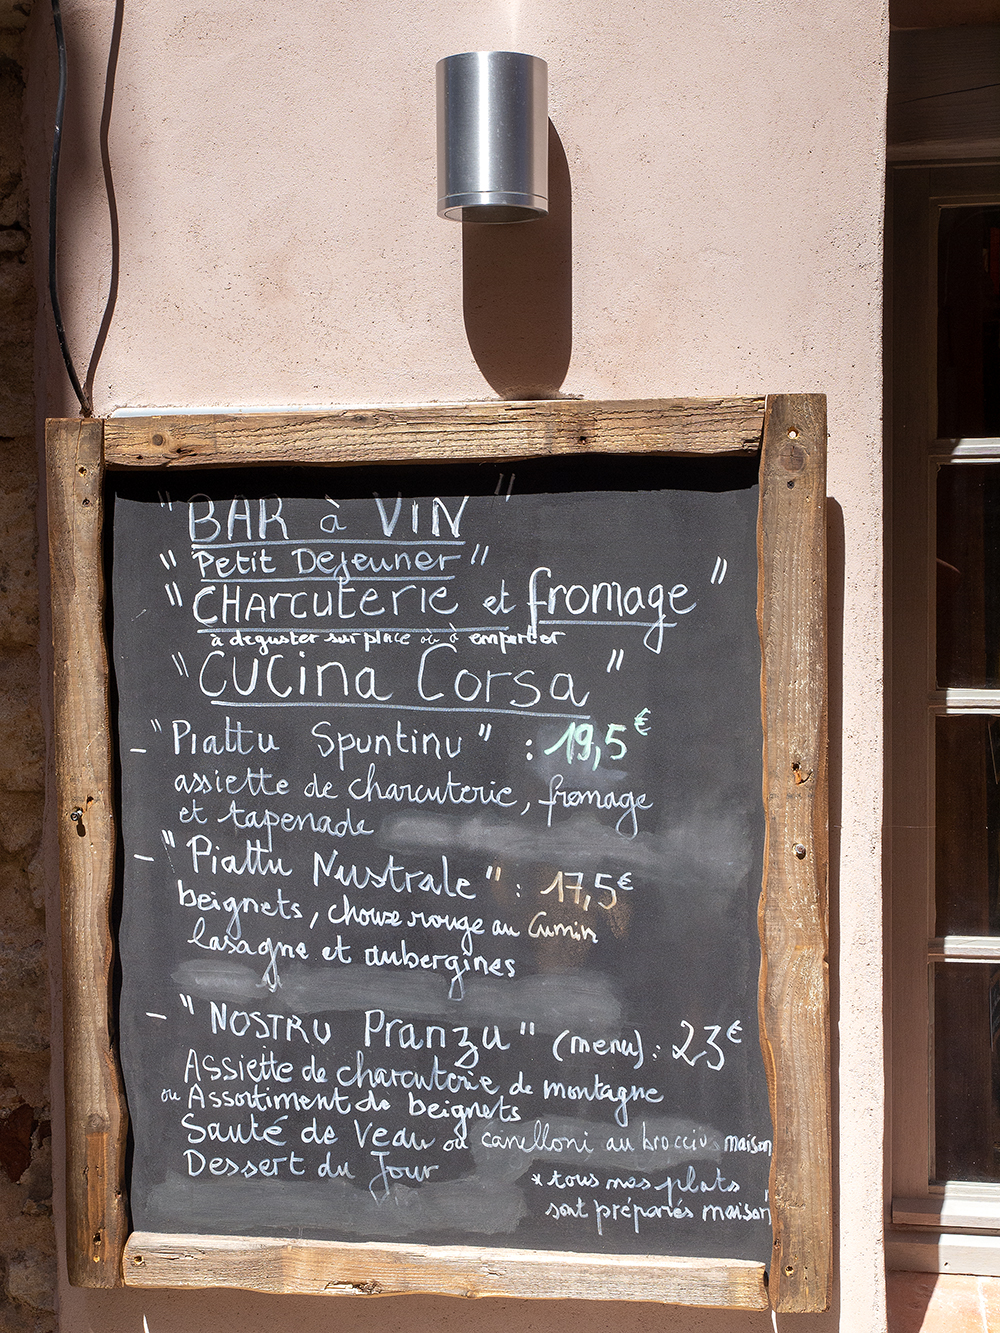 "BAR à ViN"
"Petit Dejeuner"
"CHArcuterie et fromage"
à deguster sur place où à emporter
"CUCina Corsa"
- "Piattu Spuntinu" : 19,5€
assiette de charcuterie, fromage
et tapenade
- "Piattu Nustrale" : 17,5€
beignets, choux rouge au Cumin
lasagne et aubergines
- "NOSTRU Pranzu" (menu) : 23€
Assiette de charcuterie de montagne
ou Assortiment de beignets
Sauté de Veau ou canelloni au brocciu maison
Dessert du Jour
* tous nos plats
sont préparés maison